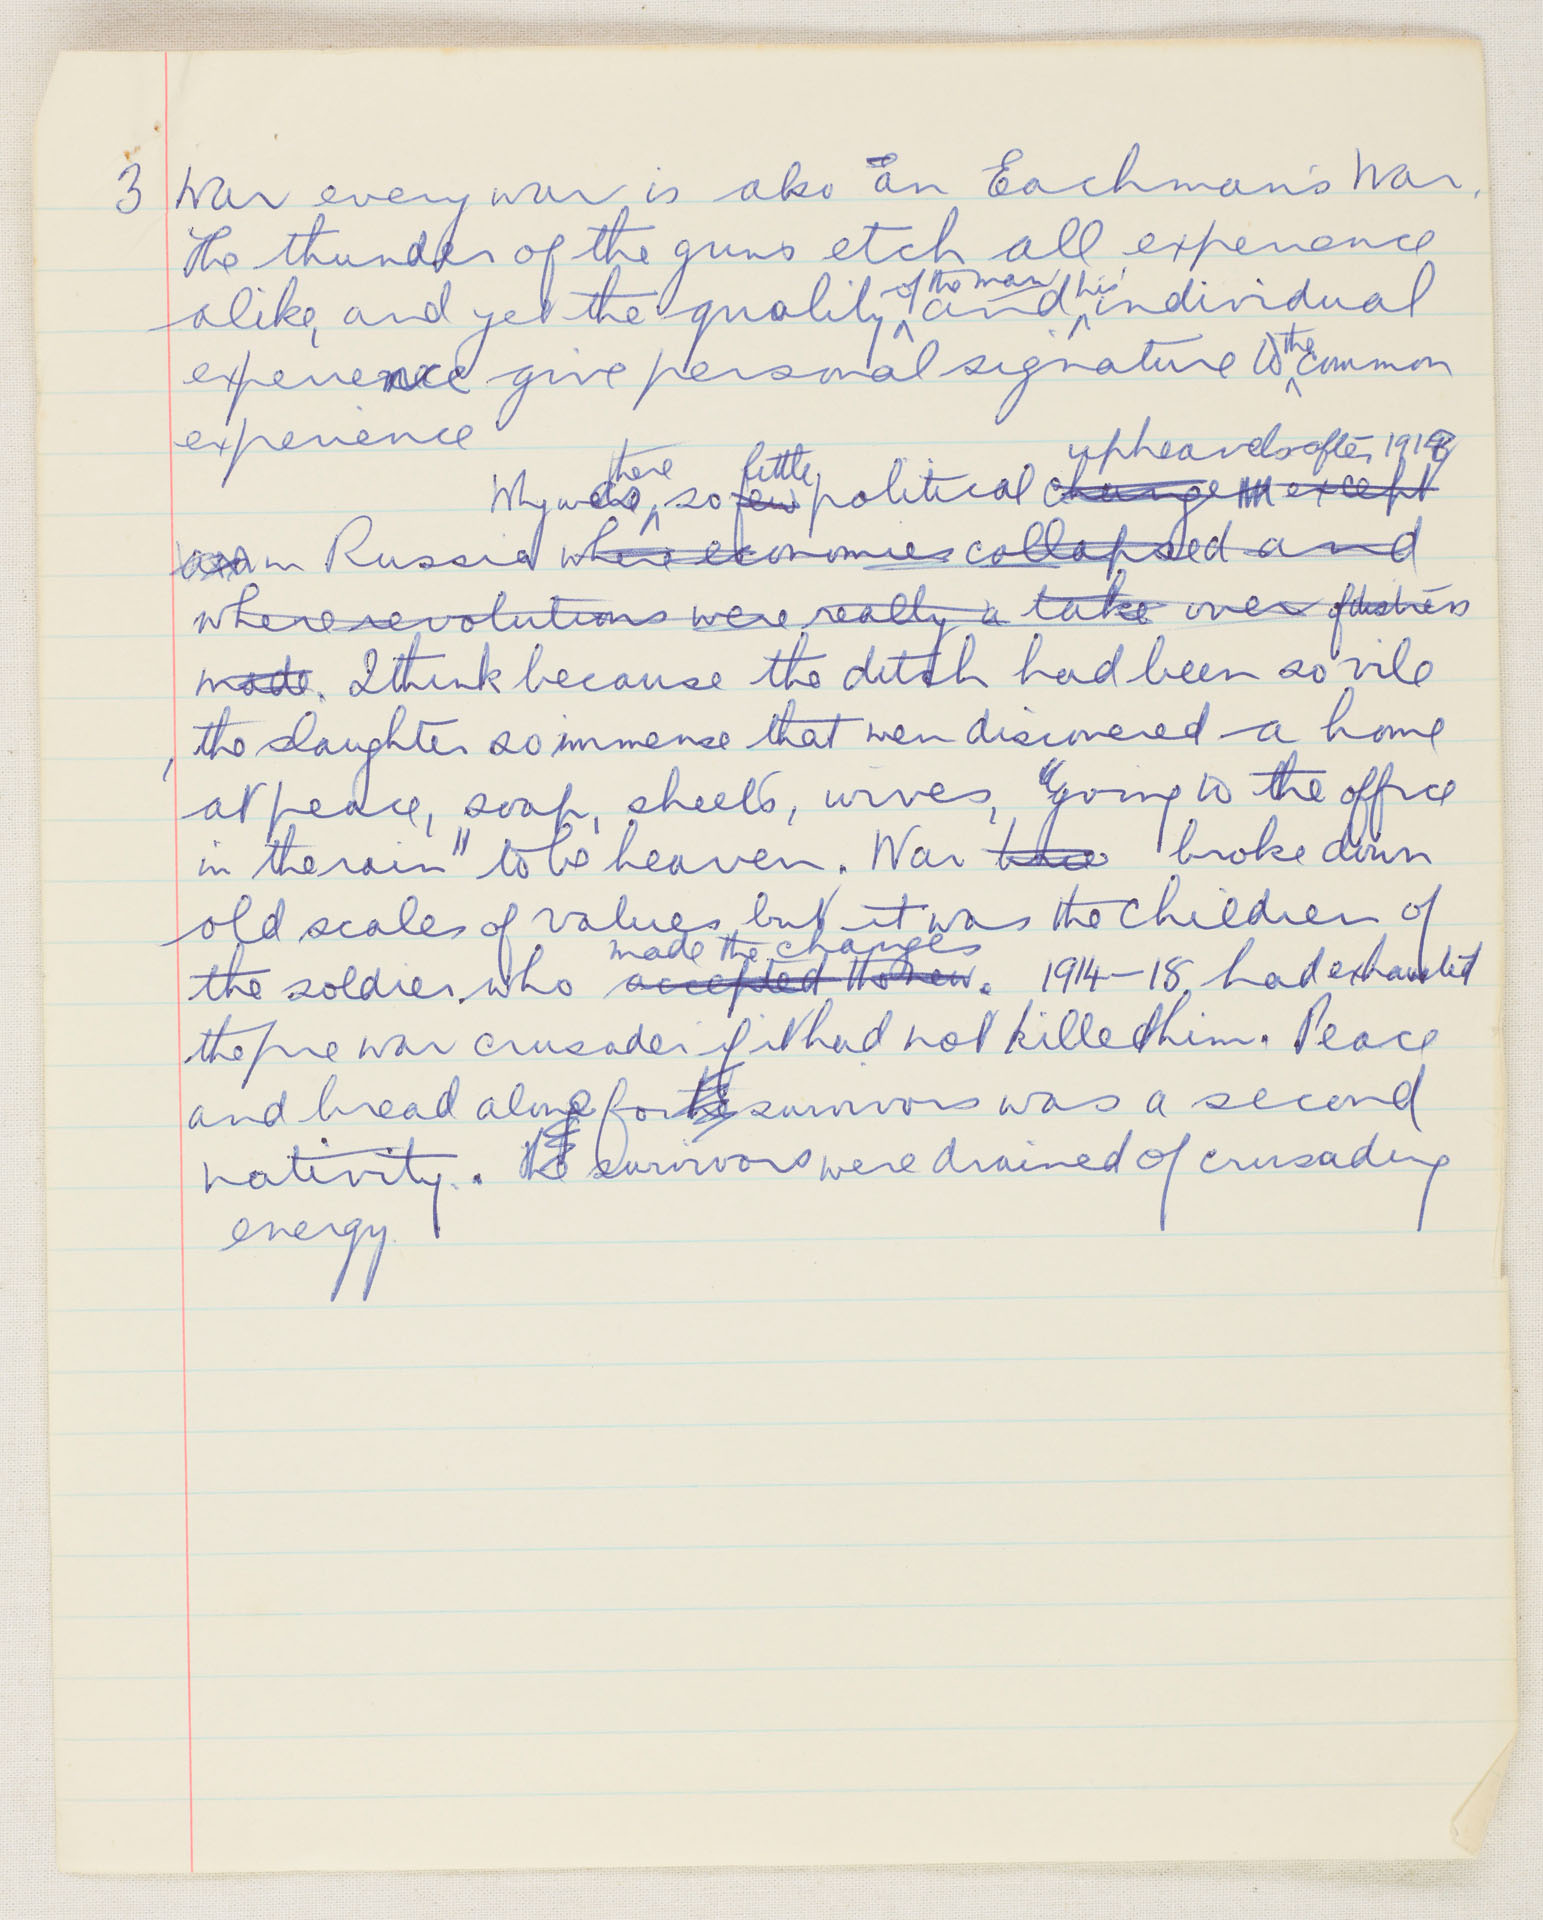 3 War every war is also an Eachman's War.
The thunder of the guns etch all experience
alike, and yet the quality of the man and his individual
experience give personal signature to the common
experience
Why was there, so few little political change upheavals after 1918 except
in Russia where economies collapsed and
where revolutions were really a take over of distress
made. I think because the ditch had been so vile
, the slaughter so immense that men discovered a home
at peace, soap, sheets, wives, "going to the office
in the rain" to be heaven. War broke down
old scales of values but it was the children of
the soldier who accepted the new made the changes. 1914-18 had exhausted
the pre war crusader if it had not killed him. Peace
and bread alone for survivors was a second
nativity. The survivors were drained of crusading
energy.